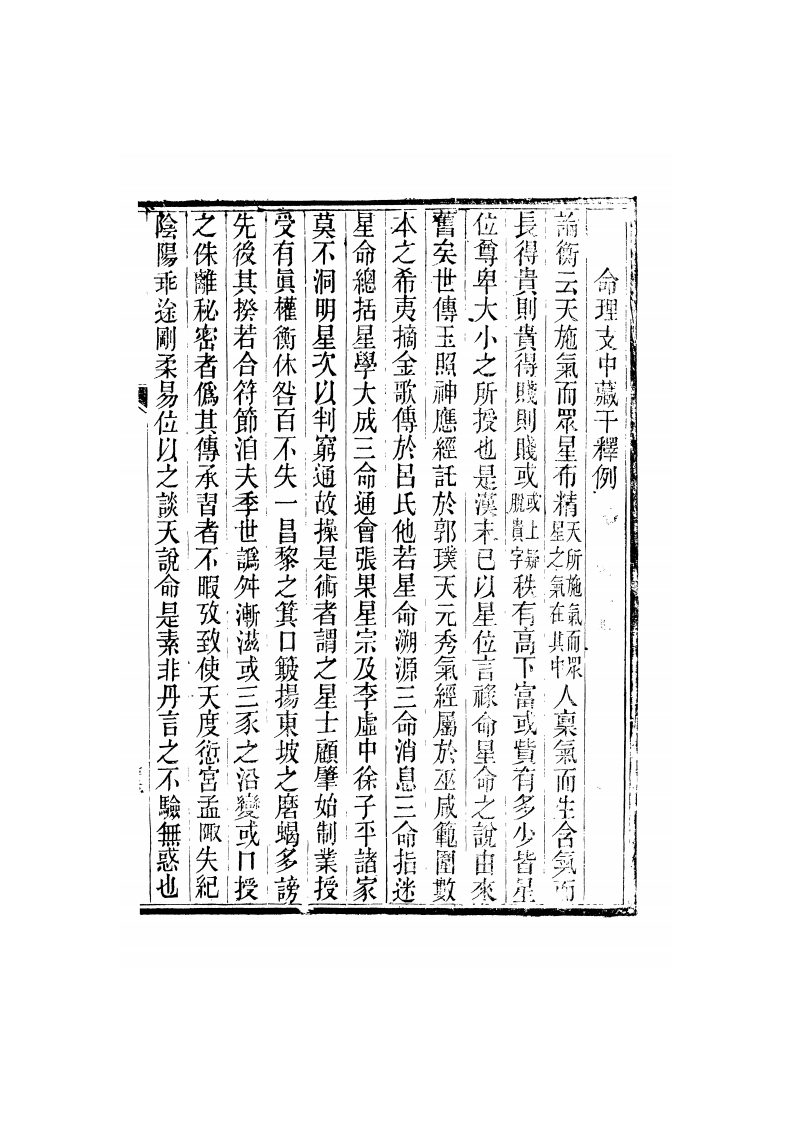 命理支中藏干釋例
論衡云天施氣而眾星布精天所施氣而眾星之氣在其中人稟氣而生含氣而
長得貴則貴得賤則賤或或上疑脫貴字秩有高下富或貲有多少皆星
位尊卑大小之所授也是漢末已以星位言祿命星命之說由來
舊矣世傳玉照神應經託於郭璞天元秀氣經屬於巫咸範圍數
本之希夷摘金歌傳於呂氏他若星命溯源三命消息三命指迷
星命總括星學大成三命通會張果星宗及李虛中徐子平諸家
莫不洞明星次以判窮通故操是術者謂之星士顧肇始制業授
受有眞權衡休咎百不失一昌黎之箕口簸揚東坡之磨蝎多謗
先後其揆若合符節洎夫季世譌舛漸滋或三豕之沿變或口授
之侏離秘密者僞其傳承習者不暇攷致使天度愆宮孟陬失紀
陰陽乖途剛柔易位以之談天說命是素非丹言之不驗無惑也